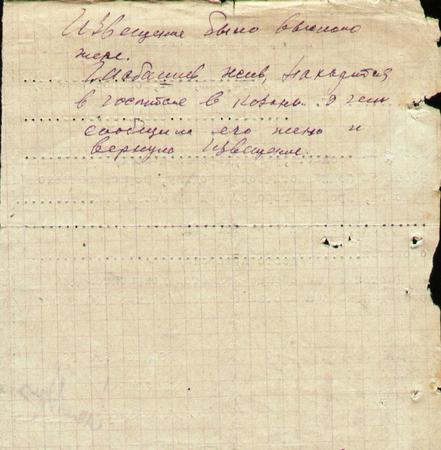 Извещение было выслано
жене.
жив, находится
в госпитале в Казани о чем
сообщила его жена и
вернула извещение.